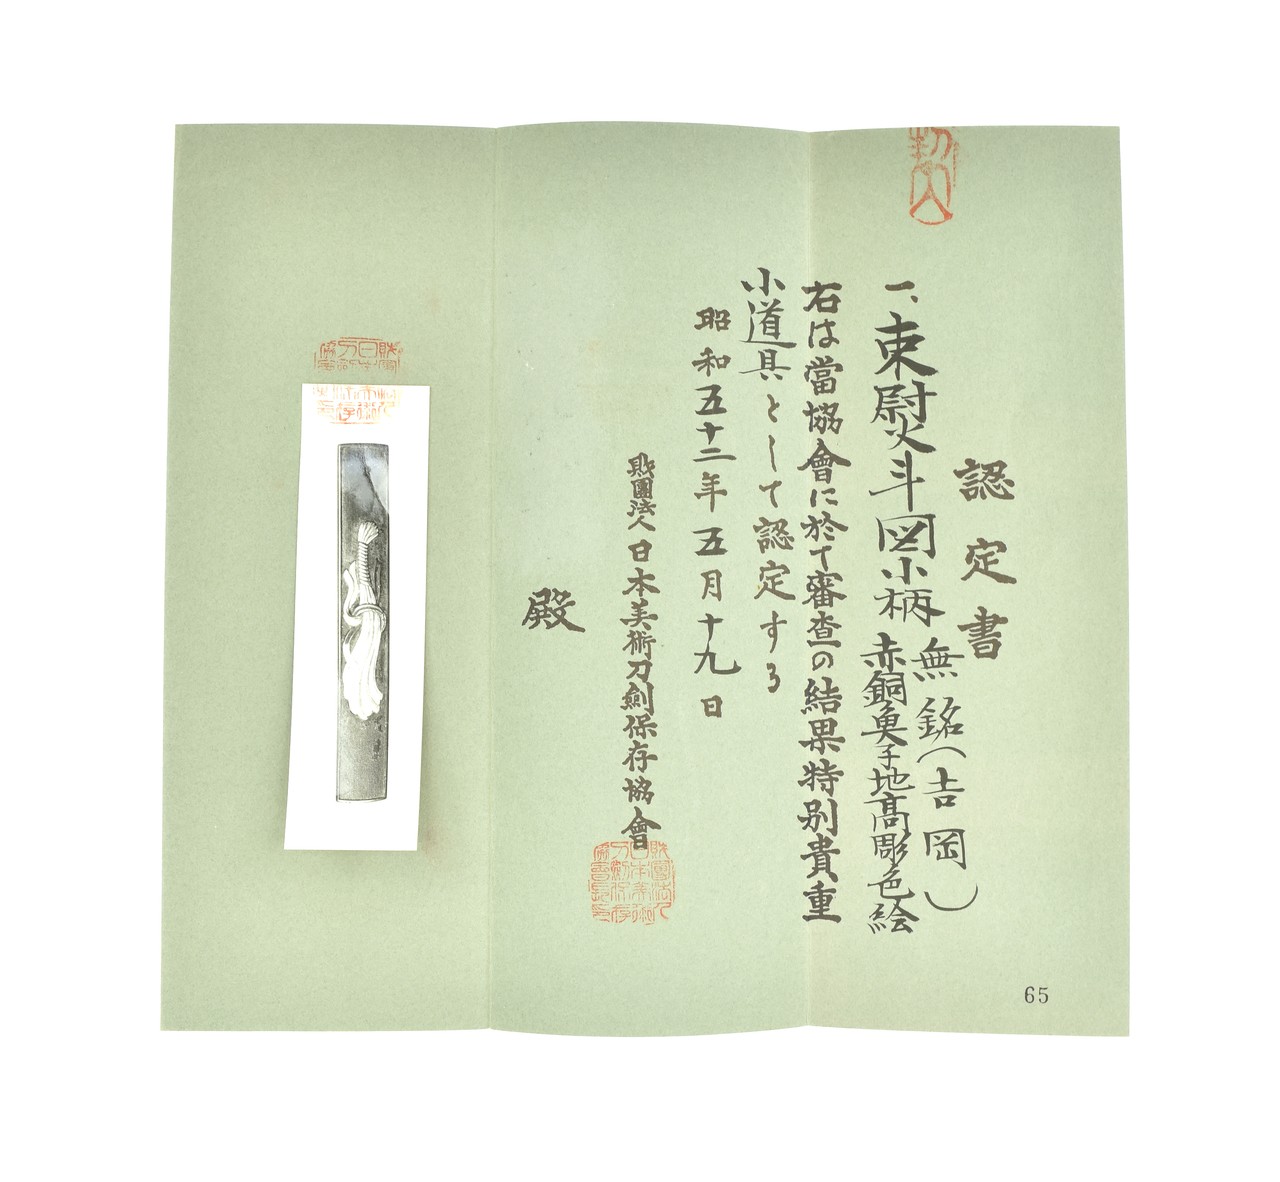 認定書
一、束尉火斗図小柄
無銘(吉岡)
赤銅魚子地高彫色絵
右は當協會に於て審査の結果特別貴重
小道具として認定する
昭和五十二年五月十九日
財團法人日本美術刀劍保存協會
殿
65